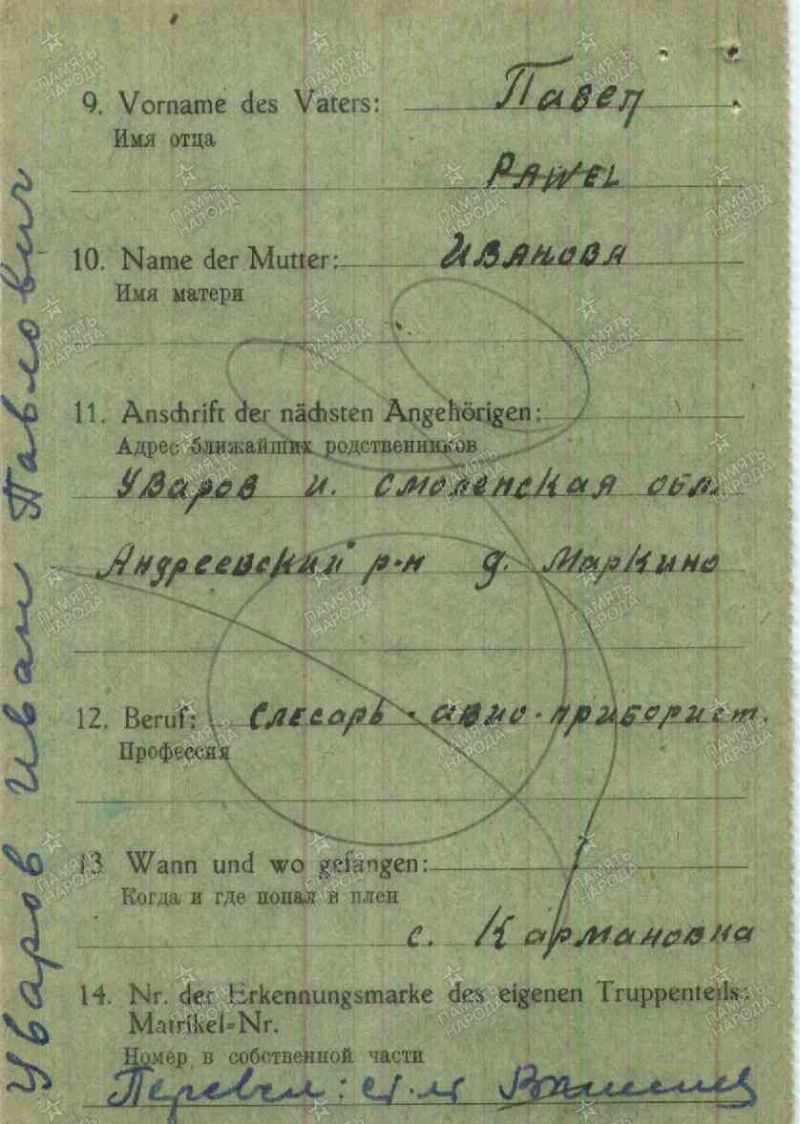 9. Vorname des Vaters: Павел
Имя отца
PAWEL
10. Name der Mutter: Иванова
Имя матери
11. Anschrift der nächsten Angehörigen:
Адрес ближайших родственников
Уваров И. Смоленская обл.
Андреевский р-н д. Маркино
12. Beruf: Слесарь-авио-приборист.
Профессия
13 Wann und wo gefangen:
Когда и где попал в плен
с. Кармановка
14. Nr. der Erkennungsmarke des eigenen Truppenteils:
Matrikel-Nr.
Номер в собственной части
Перевел: ст. л-т
Уваров Иван Павлович
ПАМЯТЬ НАРОДА